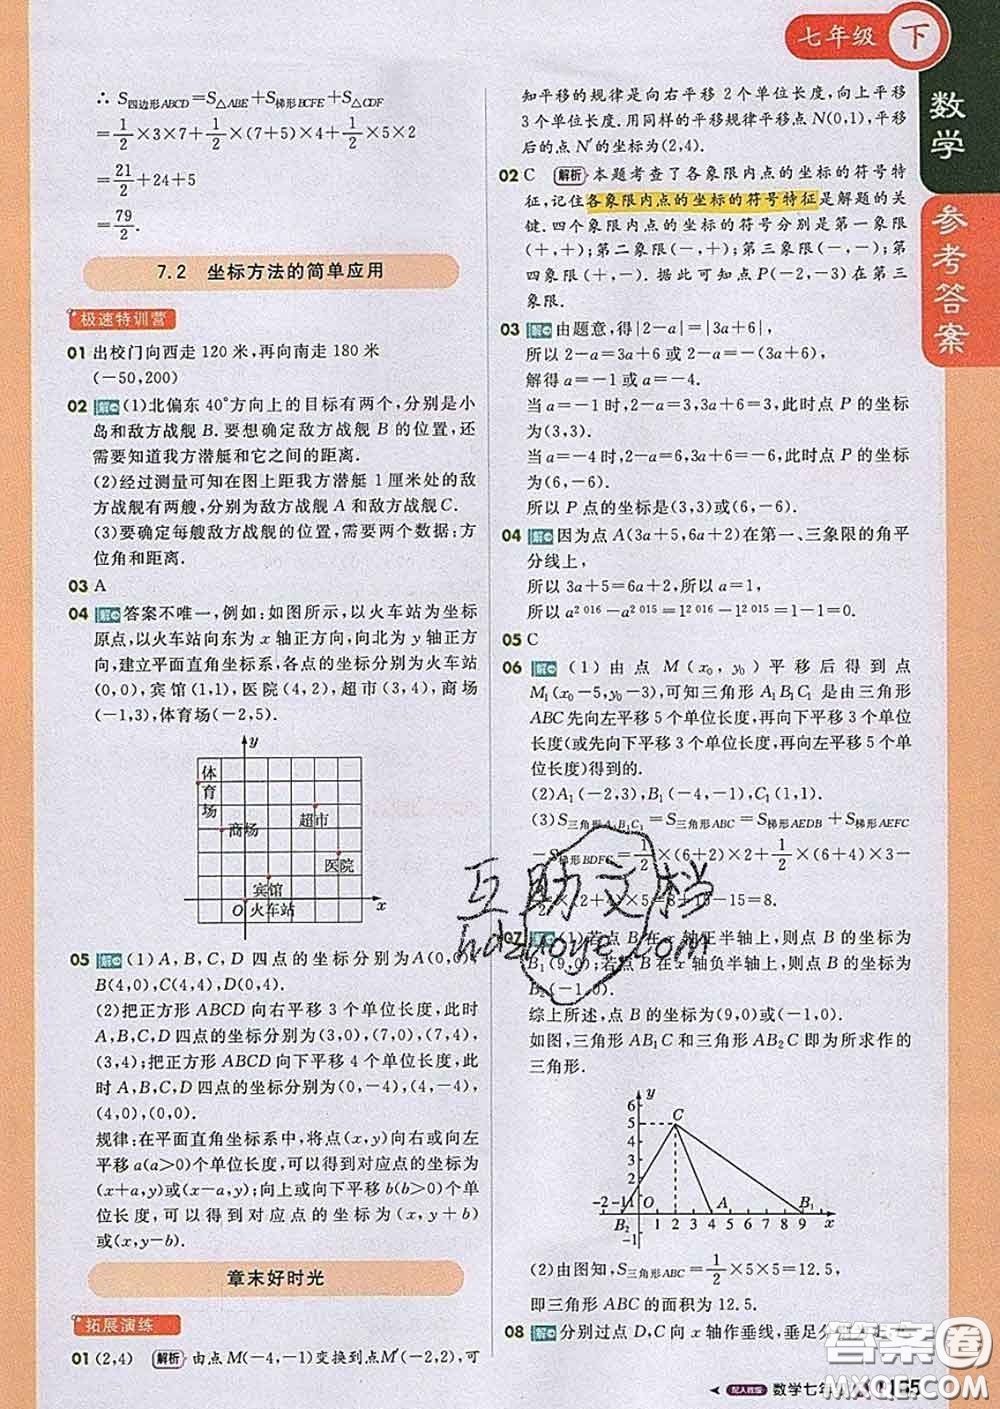 七年级 下
数学
参考答案
∴ S四边形ABCD=S△ABE+S梯形BCFE+S△CDF
=1/2×3×7+1/2×(7+5)×4+1/2×5×2
=21/2+24+5
=79/2.
7.2 坐标方法的简单应用
极速特训营
01 出校门向西走 120 米,再向南走 180 米
(-50,200)
02 解 (1)北偏东 40°方向上的目标有两个,分别是小
岛和敌方战舰 B.要想确定敌方战舰 B 的位置,还
需要知道我方潜艇和它之间的距离.
(2)经过测量可知在图上距我方潜艇 1 厘米处的敌
方战舰有两艘,分别为敌方战舰 A 和敌方战舰 C.
(3)要确定每艘敌方战舰的位置,需要两个数据:方
位角和距离.
03 A
04 解 答案不唯一,例如:如图所示,以火车站为坐标
原点,以火车站向东为 x 轴正方向,向北为 y 轴正方
向,建立平面直角坐标系,各点的坐标分别为火车站
(0,0),宾馆(1,1),医院(4,2),超市(3,4),商场
(-1,3),体育场(-2,5).
y
体育场
超市
商场
医院
宾馆
O 火车站 x
05 解 (1)A,B,C,D 四点的坐标分别为A(0,0),
B(4,0),C(4,4),D(0,4).
(2)把正方形 ABCD 向右平移 3 个单位长度,此时
A,B,C,D 四点的坐标分别为(3,0),(7,0),(7,4),
(3,4);把正方形 ABCD 向下平移 4 个单位长度,此
时 A,B,C,D 四点的坐标分别为(0,-4),(4,-4),
(4,0),(0,0).
规律:在平面直角坐标系中,将点(x,y)向右或向左
平移 a(a>0)个单位长度,可以得到对应点的坐标为
(x+a,y)或(x-a,y);向上或向下平移 b(b>0)个
单位长度,可以得到对应点的坐标为(x,y+b)
或(x,y-b).
章末好时光
拓展演练
01 (2,4) 解析 由点 M(-4,-1)变换到点M′(-2,2),可
知平移的规律是向右平移 2 个单位长度,向上平移
3 个单位长度.用同样的平移规律平移点 N(0,1),平移
后的点 N′的坐标为(2,4).
02 C 解析 本题考查了各象限内点的坐标的符号特
征,记住各象限内点的坐标的符号特征是解题的关
键.四个象限内点的坐标的符号分别是第一象限
(+,+);第二象限(-,+);第三象限(-,-);第
四象限(+,-).据此可知点 P(-2,-3)在第三
象限.
03 解 由题意,得|2-a|=|3a+6|,
所以 2-a=3a+6 或 2-a=-(3a+6),
解得 a=-1 或 a=-4.
当 a=-1 时,2-a=3,3a+6=3,此时点 P 的坐标
为(3,3).
当 a=-4 时,2-a=6,3a+6=-6,此时点 P 的坐标
为(6,-6).
所以 P 点的坐标为(3,3)或(6,-6).
04 解 因为点 A(3a+5,6a+2)在第一、三象限的角平
分线上,
所以 3a+5=6a+2,所以 a=1,
所以 a²⁰¹⁶-a²⁰¹⁵=1²⁰¹⁶-1²⁰¹⁵=1-1=0.
05 C
06 解 (1)由点 M(x₀,y₀)平移后得到点
M₁(x₀-5,y₀-3),可知三角形 A₁B₁C₁ 是由三角形
ABC 先向左平移 5 个单位长度,再向下平移 3 个单位
长度(或先向下平移 3 个单位长度,再向左平移 5 个单
位长度)得到的.
(2)A₁(-2,3),B₁(-4,-1),C₁(1,0).
(3)S三角形A₁B₁C₁=S三角形ABC=S梯形AEDB+S梯形AEFC
-S梯形BDFC=1/2×(6+2)×2+1/2×(6+4)×3-
×(2+4)×5=8+15-15=8.
07 解 (1)若点 B 在 x 轴正半轴上,则点 B 的坐标为
B₁(9,0);若点 B 在 x 轴负半轴上,则点 B 的坐标为
B₂(-1,0).
综上所述,点 B 的坐标为(9,0)或(-1,0).
如图,三角形 AB₁C 和三角形 AB₂C 即为所求作的
三角形.
y
6
5
4
3
2
1
C
-2 -1 O A B₁
B₂ 1 2 3 4 5 6 7 8 9 x
-1
(2)由图知,S三角形ABC=1/2×5×5=12.5,
即三角形 ABC 的面积为 12.5.
08 解 分别过点 D,C 向 x 轴作垂线,垂足分
配人教版 数学七年
互助文档
hdzuoye.com
答案圈